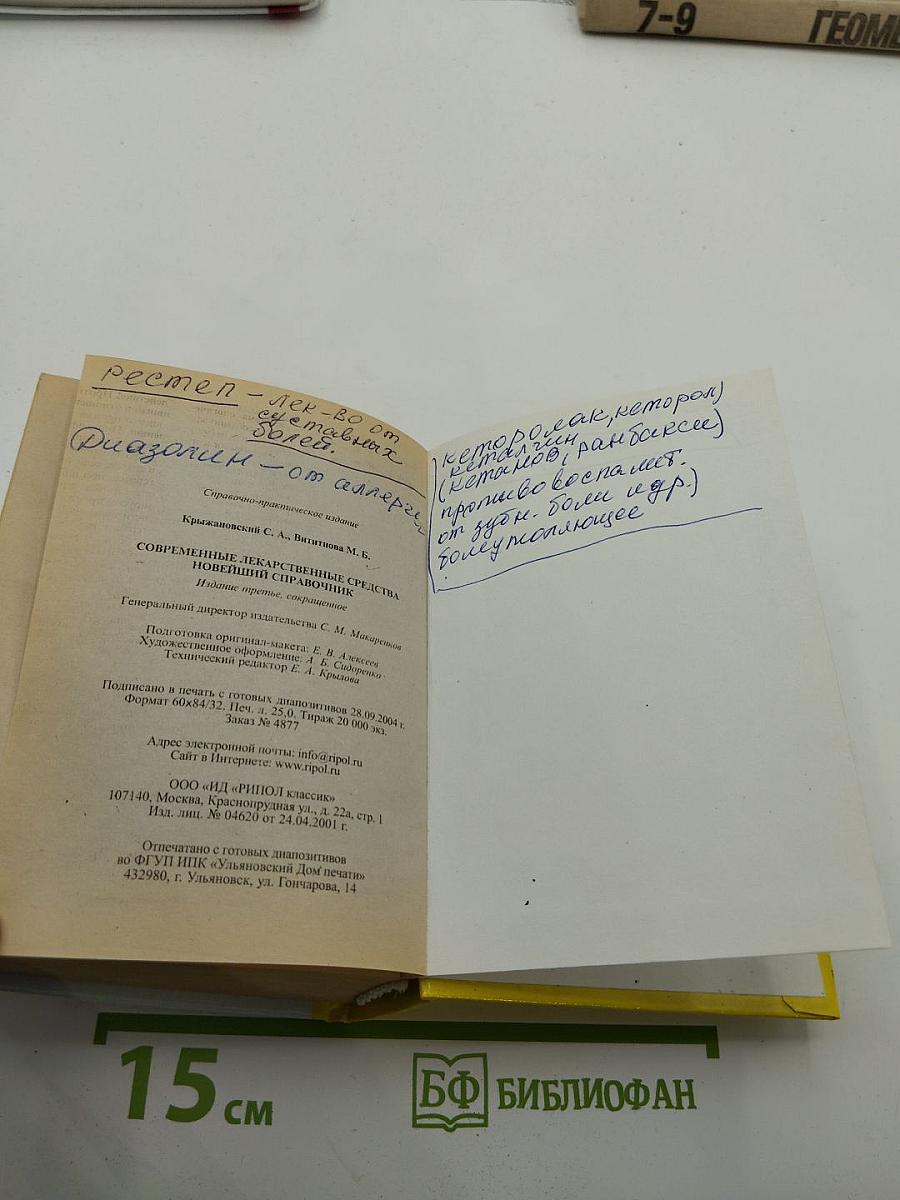 7-9
ГЕОМЕ
рестеп - лек-во от
суставных
болей.
Диазолин - от аллергии
Справочно-практическое издание
Крыжановский С. А., Вититнова М. Б.
СОВРЕМЕННЫЕ ЛЕКАРСТВЕННЫЕ СРЕДСТВА
НОВЕЙШИЙ СПРАВОЧНИК
Издание третье, сокращенное
Генеральный директор издательства С. М. Макаренков
Подготовка оригинал-макета: Е. В. Алексеев
Художественное оформление: А. Б. Сидоренко
Технический редактор Е. А. Крылова
Подписано в печать с готовых диапозитивов 28.09.2004 г.
Формат 60×84/32. Печ. л. 25,0. Тираж 20 000 экз.
Заказ № 4877
Адрес электронной почты: info@ripol.ru
Сайт в Интернете: www.ripol.ru
ООО «ИД «РИПОЛ классик»
107140, Москва, Краснопрудная ул., д. 22а, стр. 1
Изд. лиц. № 04620 от 24.04.2001 г.
Отпечатано с готовых диапозитивов
во ФГУП ИПК «Ульяновский Дом печати»
432980, г. Ульяновск, ул. Гончарова, 14
кеторолак, кеторол)
(кеталгин
(кетанов, ранбакси)
противовоспалит.
от зубн. боли и др.)
болеутоляющее
15 см
БФ БИБЛИОФАН